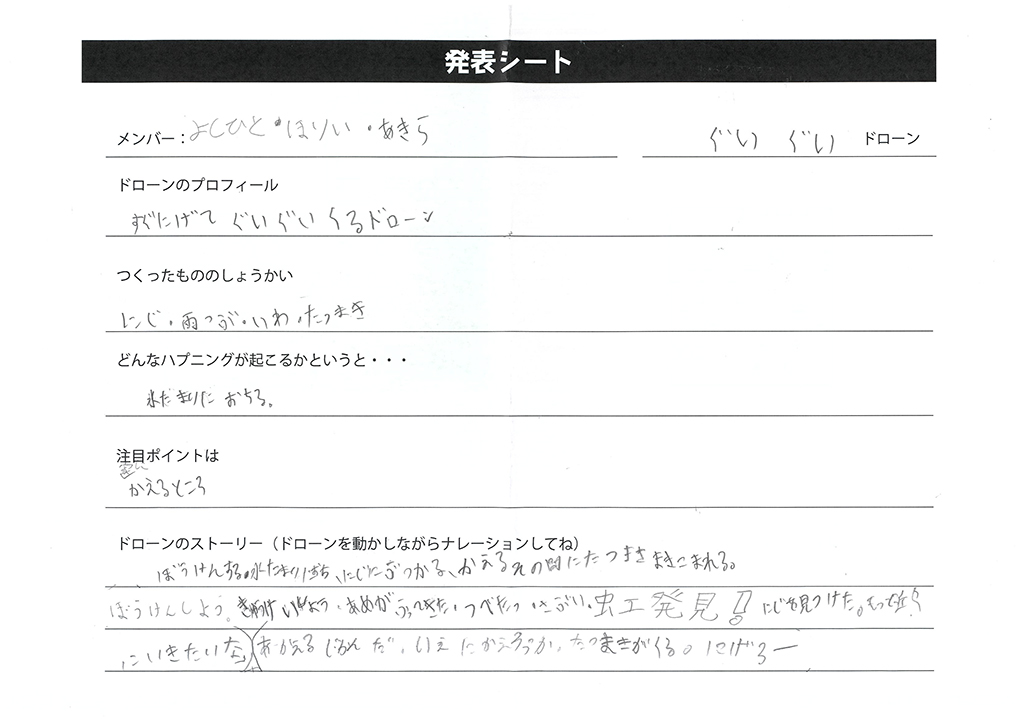 発表シート
メンバー：よしひと・ほりい・あきら
ぐい ぐい ドローン
ドローンのプロフィール
すぐにげて ぐいぐい くるドローン
つくったもののしょうかい
にじ・雨つぶ・いわ・たつまき
どんなハプニングが起こるかというと・・・
水だまりに おちる。
注目ポイントは
かえるところ
ドローンのストーリー（ドローンを動かしながらナレーションしてね）
ぼうけんする。水たまり にじにぶつかる、かえる その間にたつまきまきこまれる。
ぼうけんしよう。 あめが ふってきた・つべたっ 虫工発見!! にじを見つけた。もっと近く
にいきたいな かえる じかんだ。いえ にかえろっか。たつまきがくる。にげろー